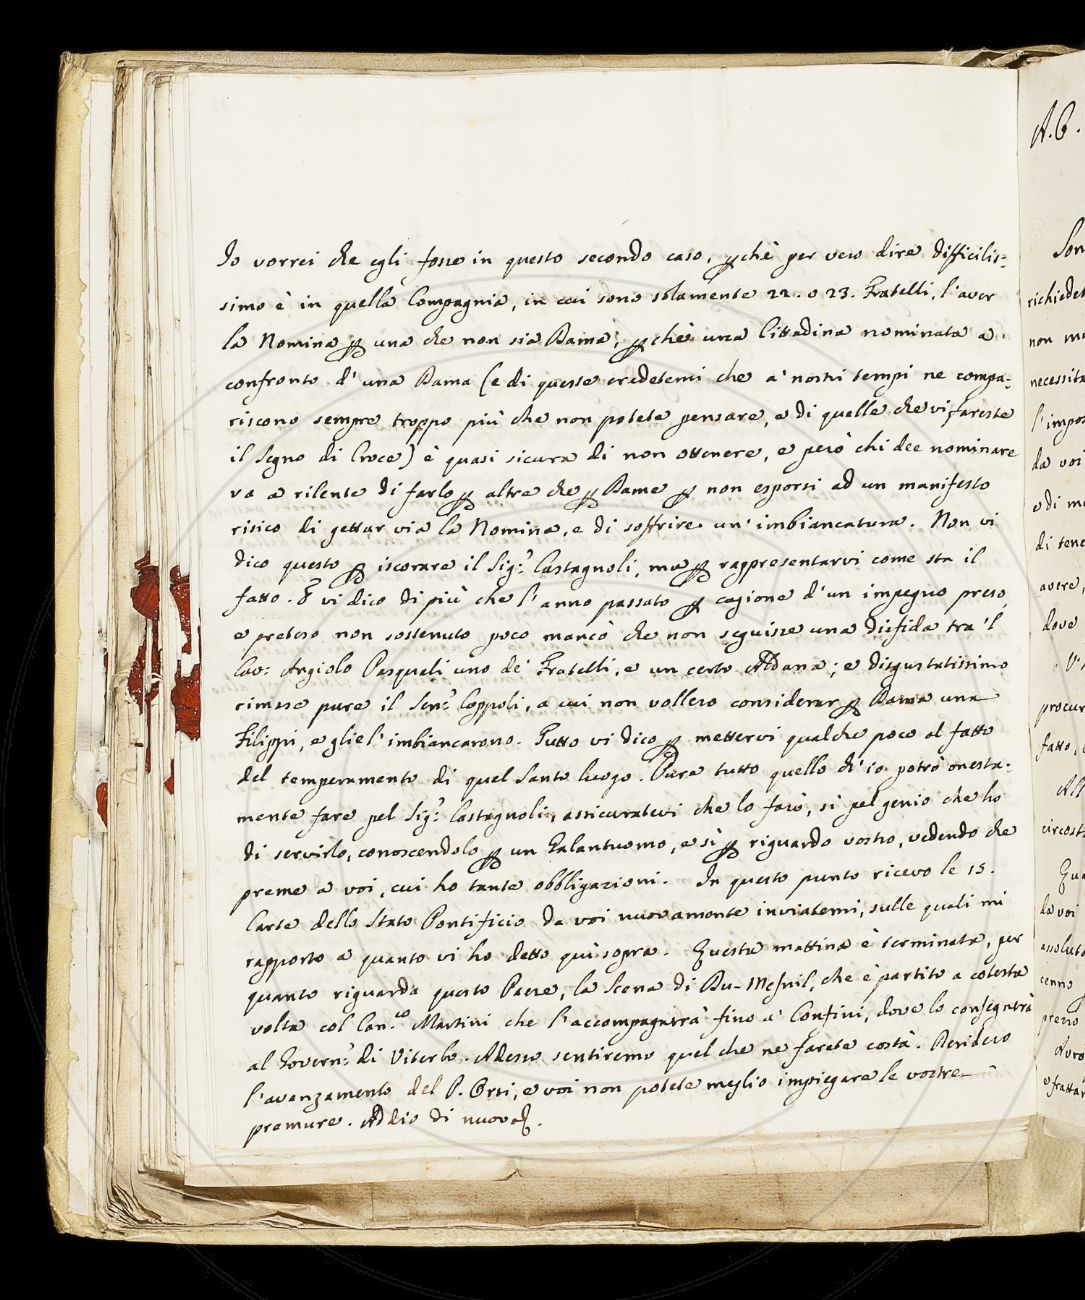 Io vorrei che egli fosse in questo secondo caso, p chè per vero dire difficilis-
simo è in quella Compagnia, in cui sono solamente 22. o 23. Fratelli, l'aver
la Nomina p una che non sia Dama; p chè una Cittadina nominata a
confronto d'una Dama (e di queste credetemi che a' nostri tempi ne compa-
riscono sempre troppo più che non potete pensare, e di quelle che vi fareste
il segno di Croce) è quasi sicura di non ottenere, e però chi dee nominare
va a rilente di farlo p altre che p Dame p non esporsi ad un manifesto
risico di gettar via la Nomina, e di soffrire un' imbiancatura. Non vi
dico questo p iscorare il Sig.r Castagnoli, ma p rappresentarvi come sta il
fatto. E vi dico di più che l'anno passato p cagione d'un impegno preso,
e preteso non sostenuto poco mancò che non seguisse una disfida tra 'l
Cav: Angiolo Pasquali uno de' Fratelli, e un certo Aldana; e disgustatissimo
rimase pure il Sen.r Coppoli, a cui non vollero considerar p Dama una
Filippi, e glie l'imbiancarono. Tutto vi dico p mettervi qualche poco al fatto
del temperamento di quel Santo luogo. Pure tutto quello ch' io potrò onesta-
mente fare pel Sig.r Castagnoli, assicuratevi che lo farò, sì pel genio che ho
di servirlo, conoscendolo p un Galantuomo, e sì p riguardo vostro, vedendo che
preme a voi, cui ho tante obbligazioni. In questo punto ricevo le 15.
Carte dello Stato Pontificio da voi nuovamente inviatemi, sulle quali mi
rapporto a quanto vi ho detto quì sopra. Questa mattina è terminata, per
quanto riguarda questo Paese, la Scena di Du-Mesnil, che è partito a cotesta
volta col Can.co Martini che l'accompagnerà fino a' Confini, dove lo consegnerà
al Govern.r di Viterbo. Adesso sentiremo quel che ne farete costà. Desidero
l'avanzamento del P. Orsi, e voi non potete meglio impiegare le vostre
premure. Addio di nuovo.
A.C.
Son
richiedet
non m
necessita
l'impos
da voi
o di m
di tene
avere,
dove
V.
procur
fatto,
All
circost
Qua
da voi
assoluto
cenno
prezzo
Avro
e frattan